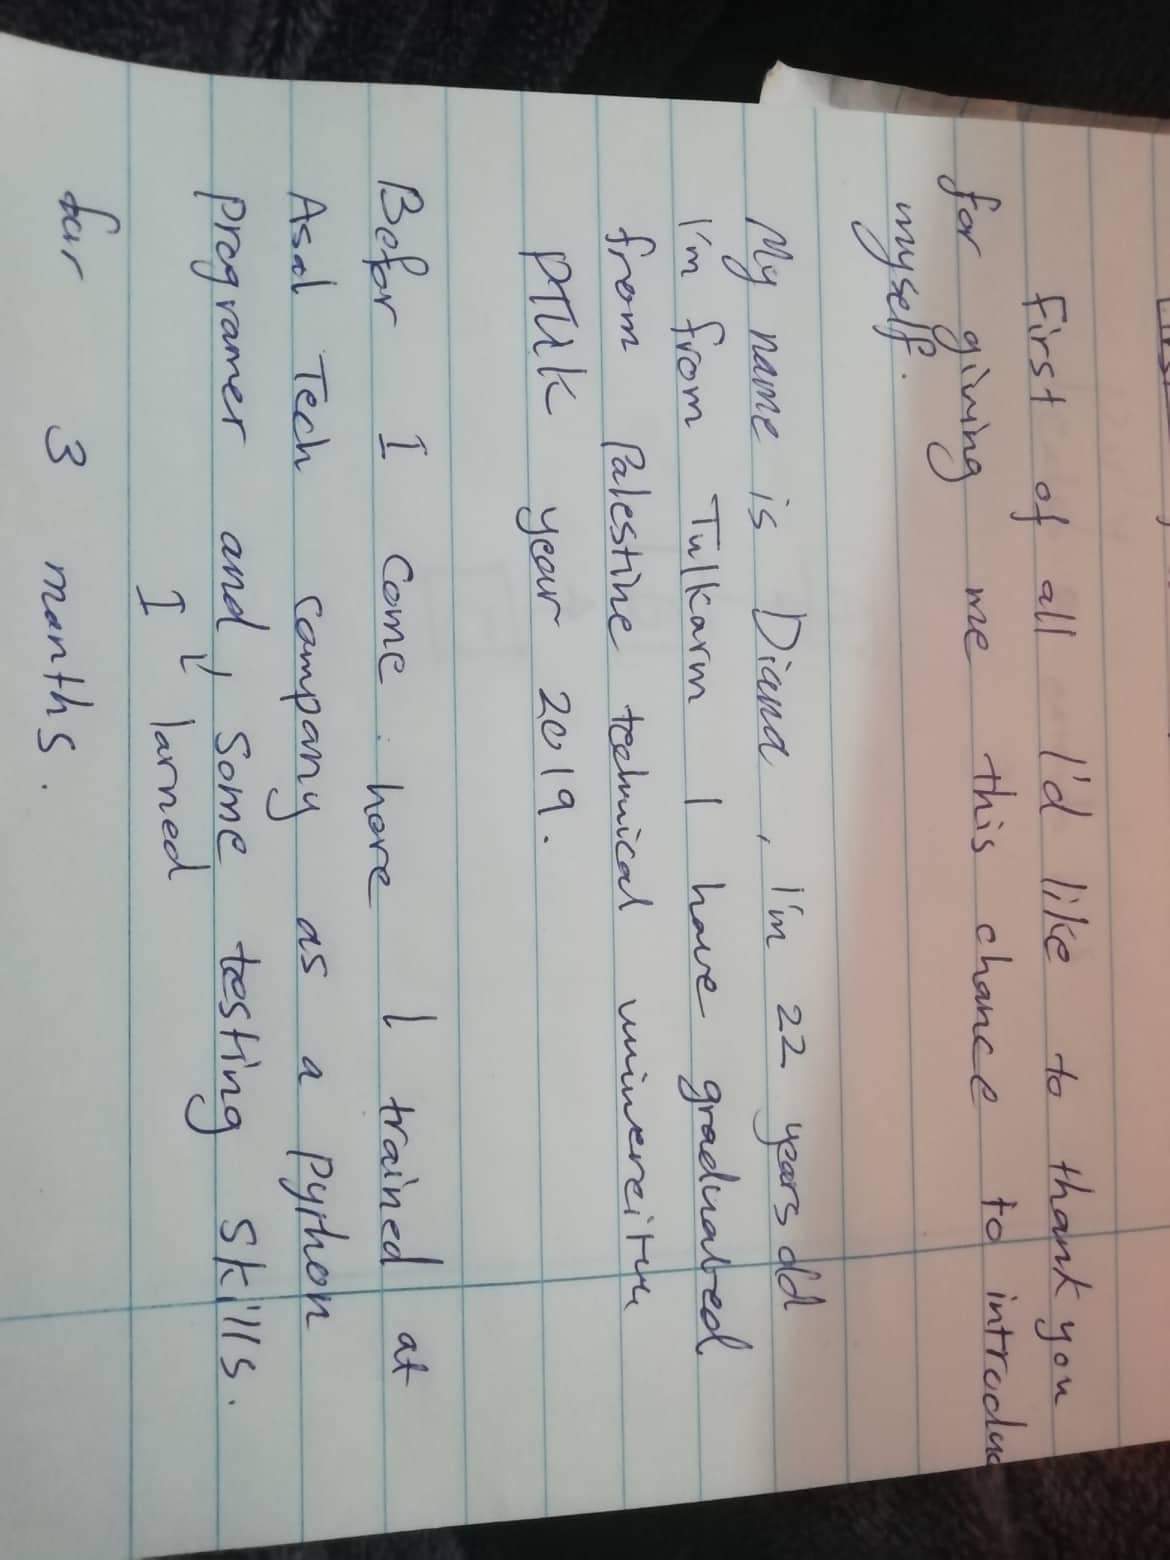 First of all I'd like to thank you
for giving me this chance to introduc
myself.
My name is Diana, I'm 22 years old
I'm from Tulkarm I have graduated
from Palestine technical univercity
PTUK year 2019.
Befor I come here I trained at
Asal Tech company as a Python
programer and, some testing skills.
I larned
for 3 months.